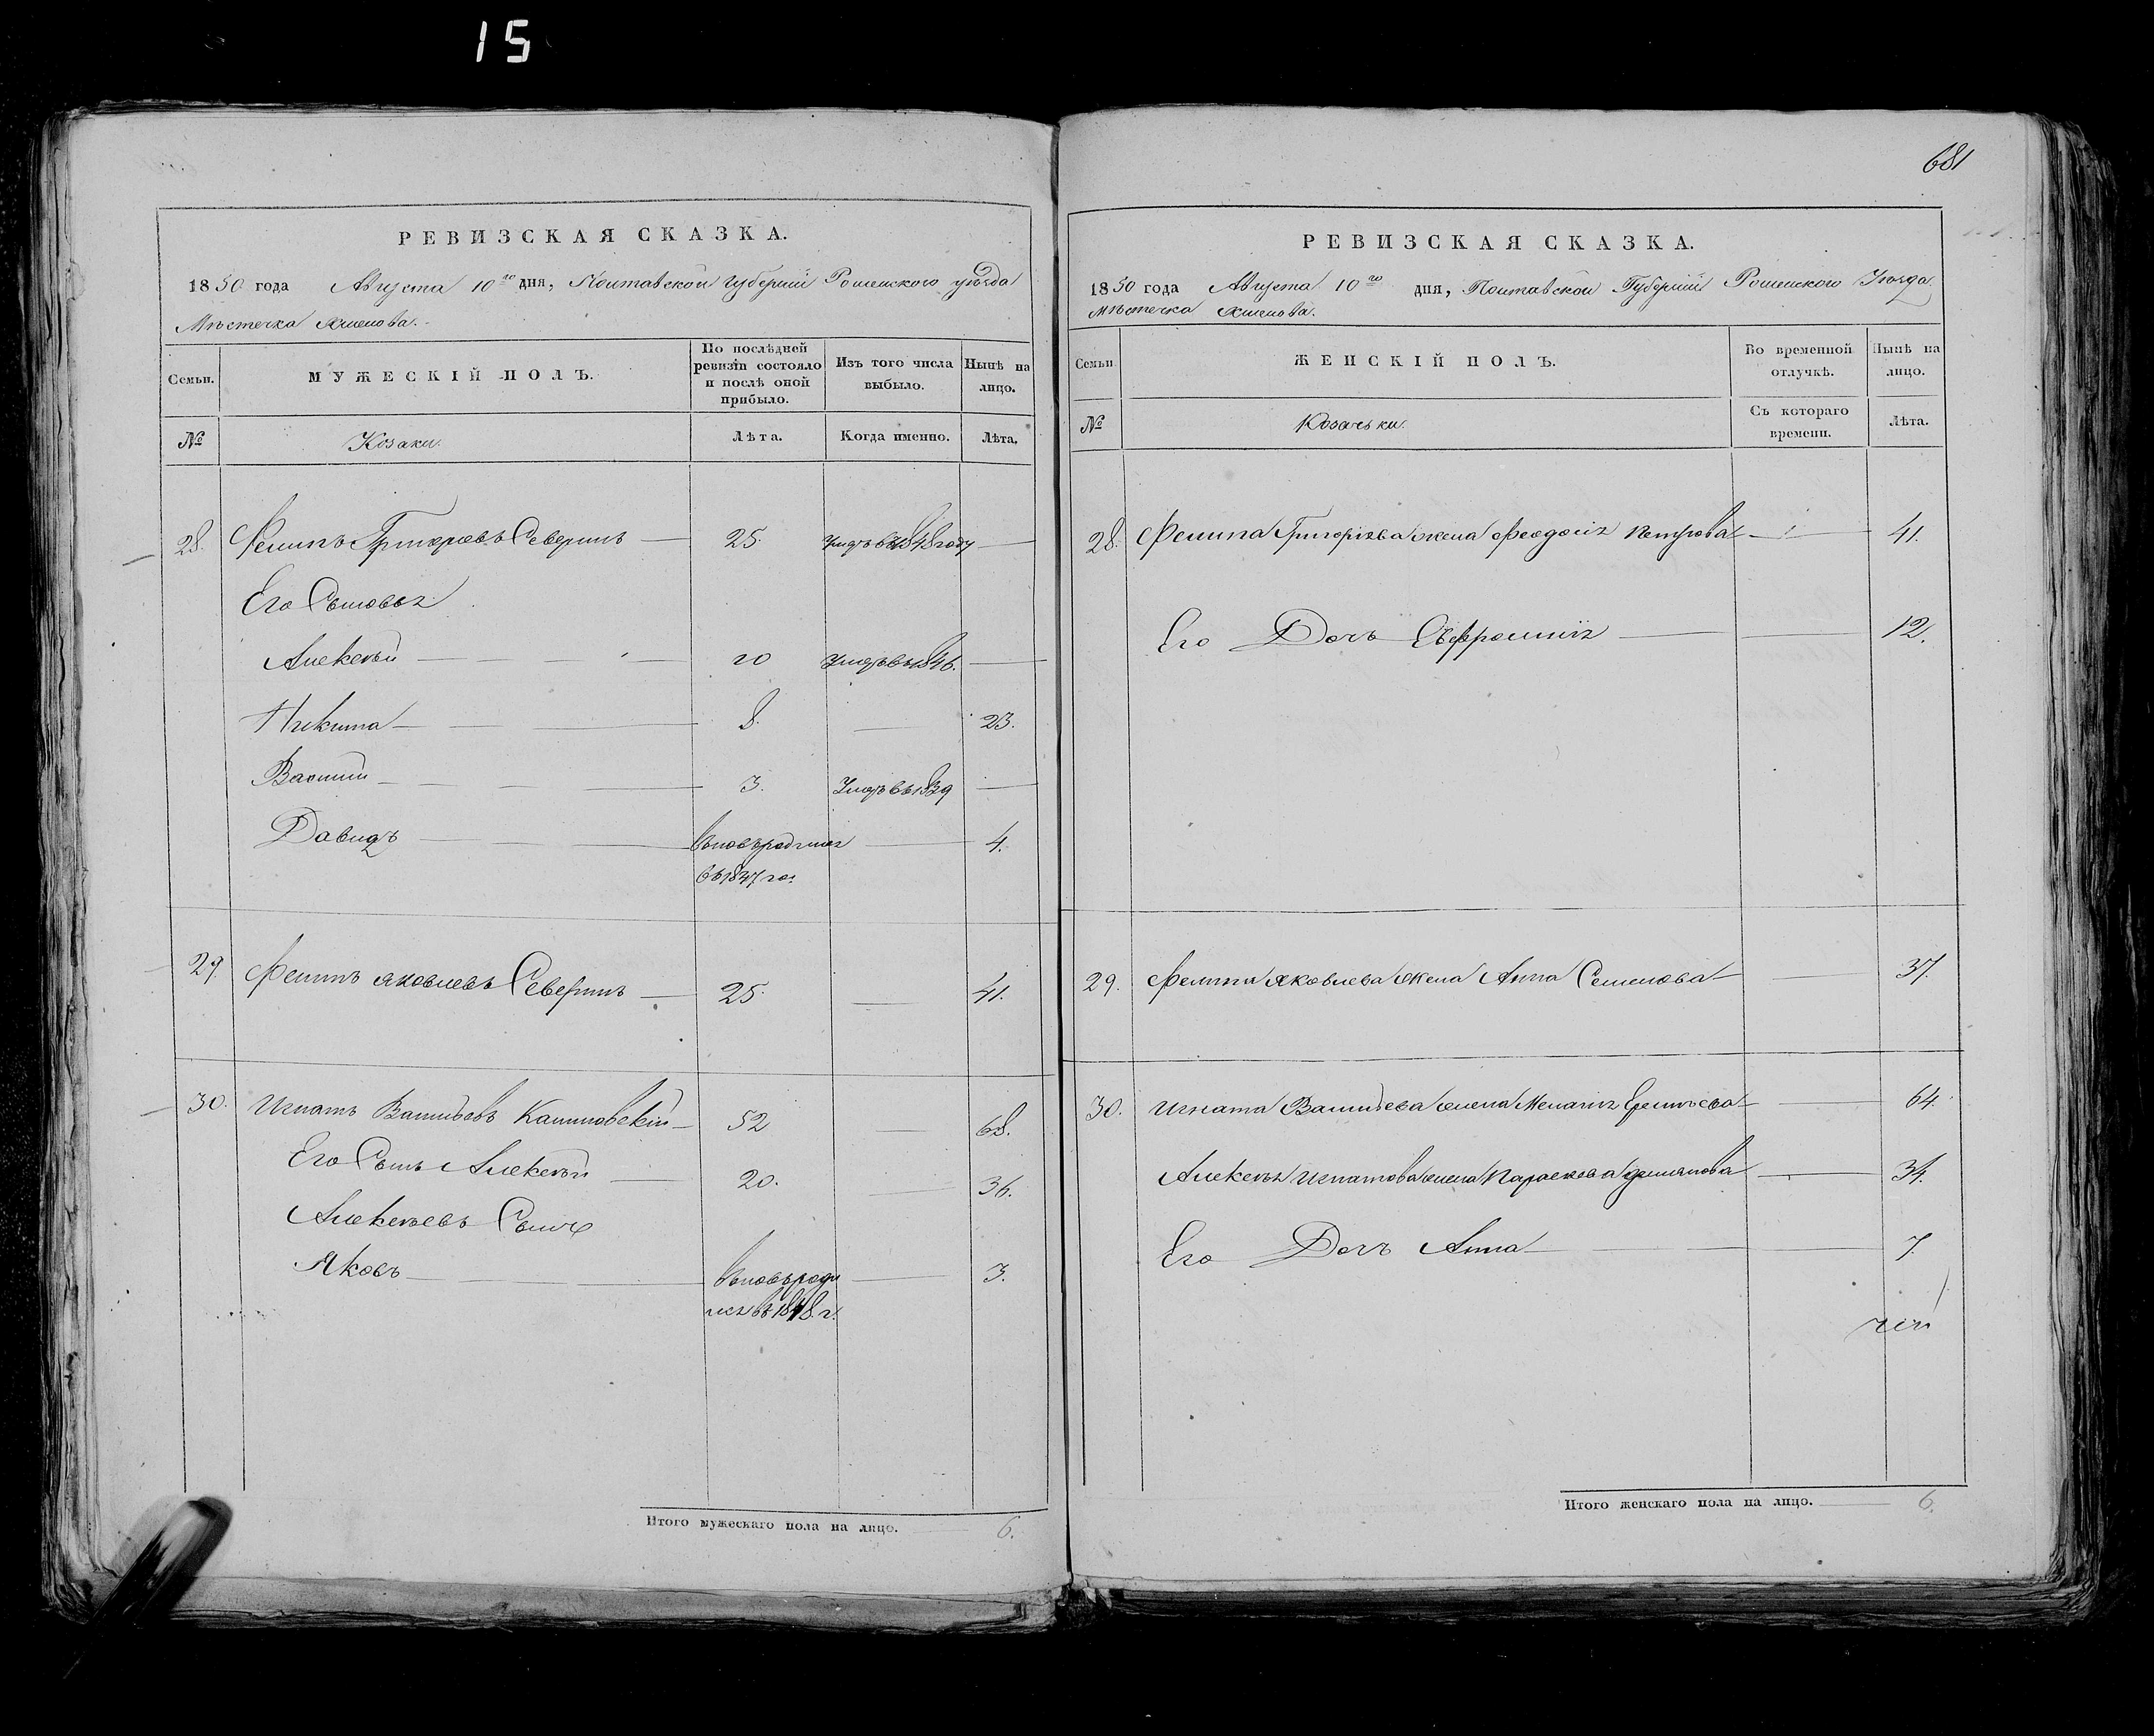 15
681
РЕВИЗСКАЯ СКАЗКА.
1850 года Августа 10го дня, Полтавской губерніи Роменского уѣзда
Мѣстечка Хмелова.
Семьи.
МУЖЕСКІЙ ПОЛЪ.
По послѣдней ревизіи состояло и послѣ оной прибыло.
Изъ того числа выбыло.
Нынѣ на лицо.
№
Козаки
Лѣта.
Когда именно.
Лѣта.
28. Филипъ Григорьевъ Северинъ 25. Умеръ въ 1848 году
Его Сыновья
Алексѣй 20 Умеръ въ 1846.
Никита 8. 23.
Василій 3. Умеръ въ 1839
Давидъ вновь родился 4.
въ 1847 го:
29. Филипъ Яковлевъ Северинъ 25. 41.
30. Игнатъ Васильевъ 52 68.
Его Сынъ Алексѣй 20. 36.
Алексѣевъ Сынъ
Яковъ вновь роди 3.
лся въ 1848. г.
Итого мужескаго пола на лицо. 6.
РЕВИЗСКАЯ СКАЗКА.
1850 года Августа 10го дня, Полтавской Губерніи Роменского Уѣзда
Мѣстечка Хмелова.
Семьи
ЖЕНСКІЙ ПОЛЪ.
Во временной отлучкѣ.
Нынѣ на лицо.
№
Козачьки.
Съ котораго времени.
Лѣта.
28. Филипа Григорьева жена Феодосія Петрова 41.
Его Дочь Евфросинія 12.
29. Филипа Яковлева жена Анна Семенова 37.
30. Игната Васильева жена Меланія 64.
Алексѣя Игнатова жена Параскева 34.
Его Дочь Анна 7.
Итого женскаго пола на лицо. 6.